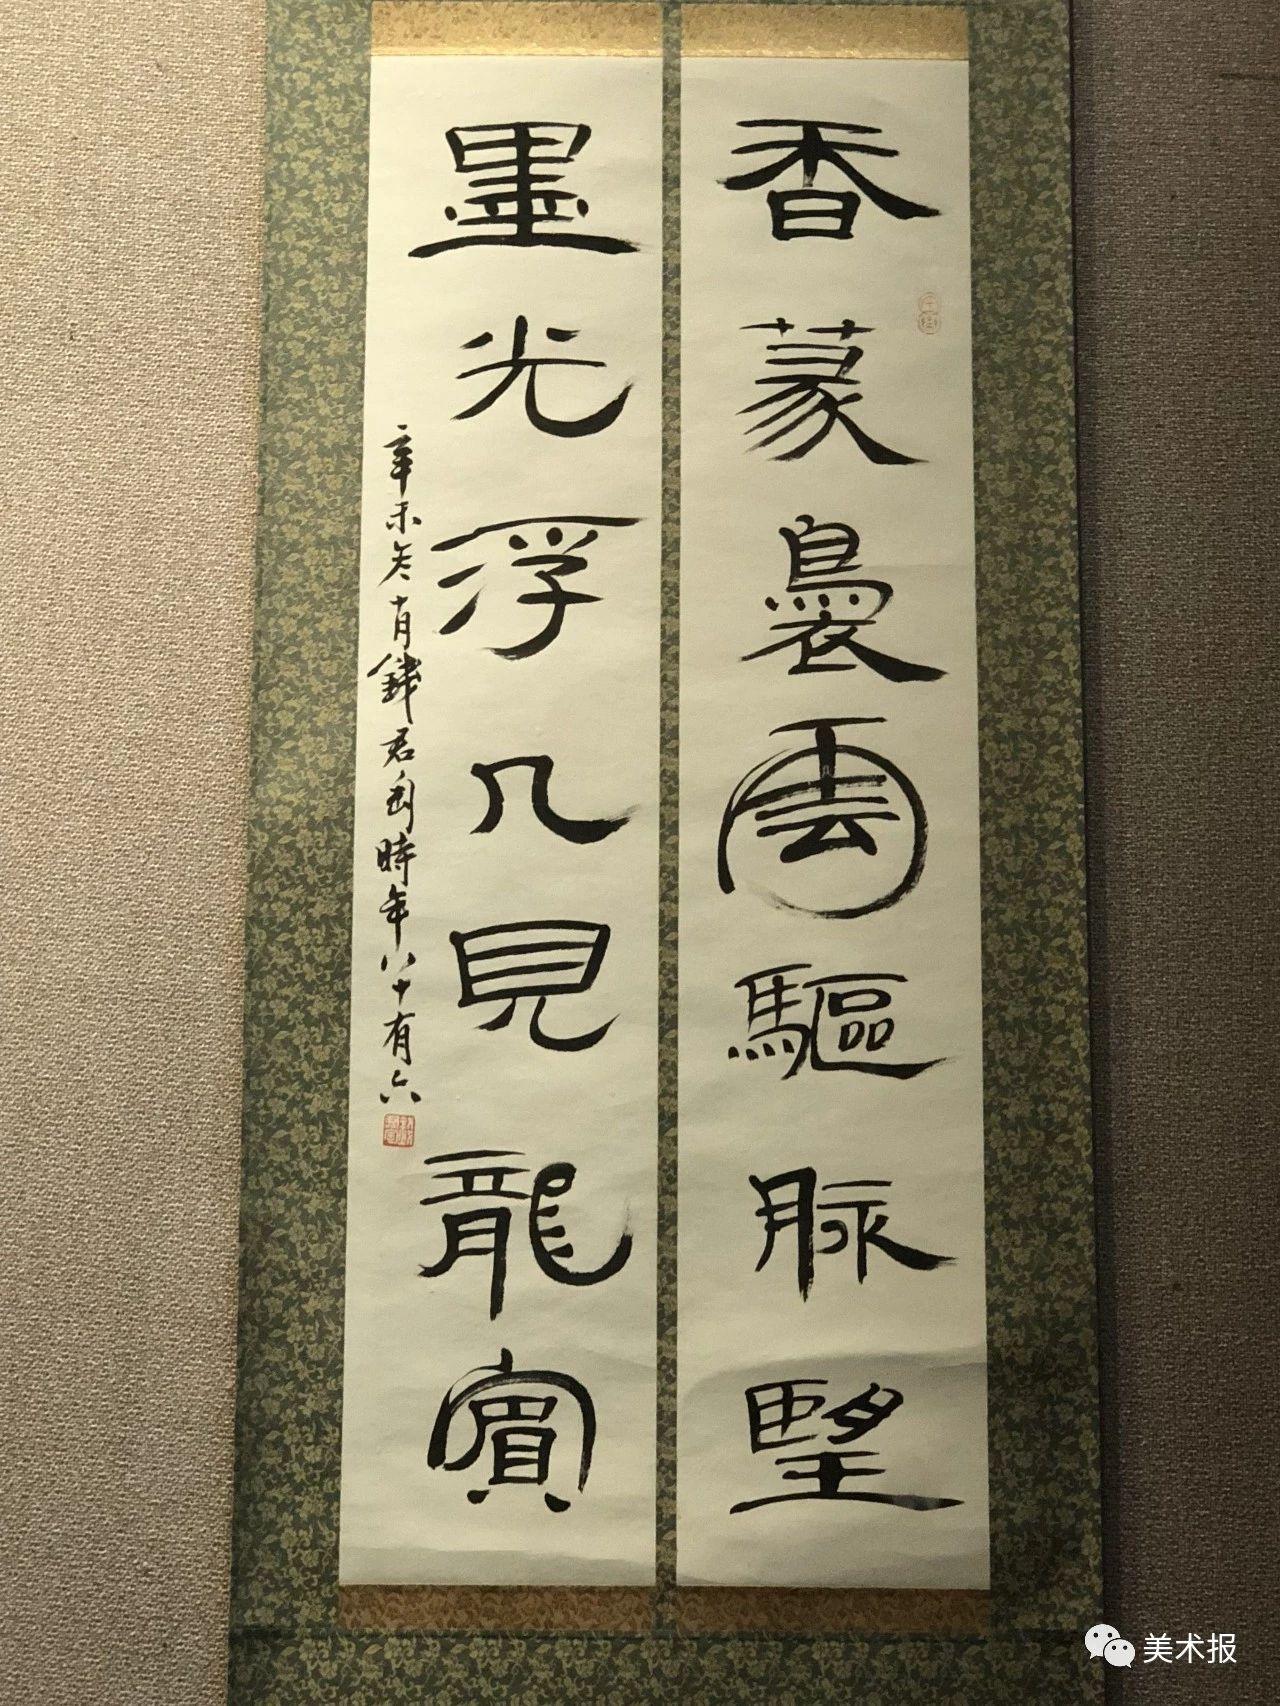 香篆裊雲驅脉望
墨光浮几見龍賓
辛未冬十月錢君匋時年八十有六
美术报